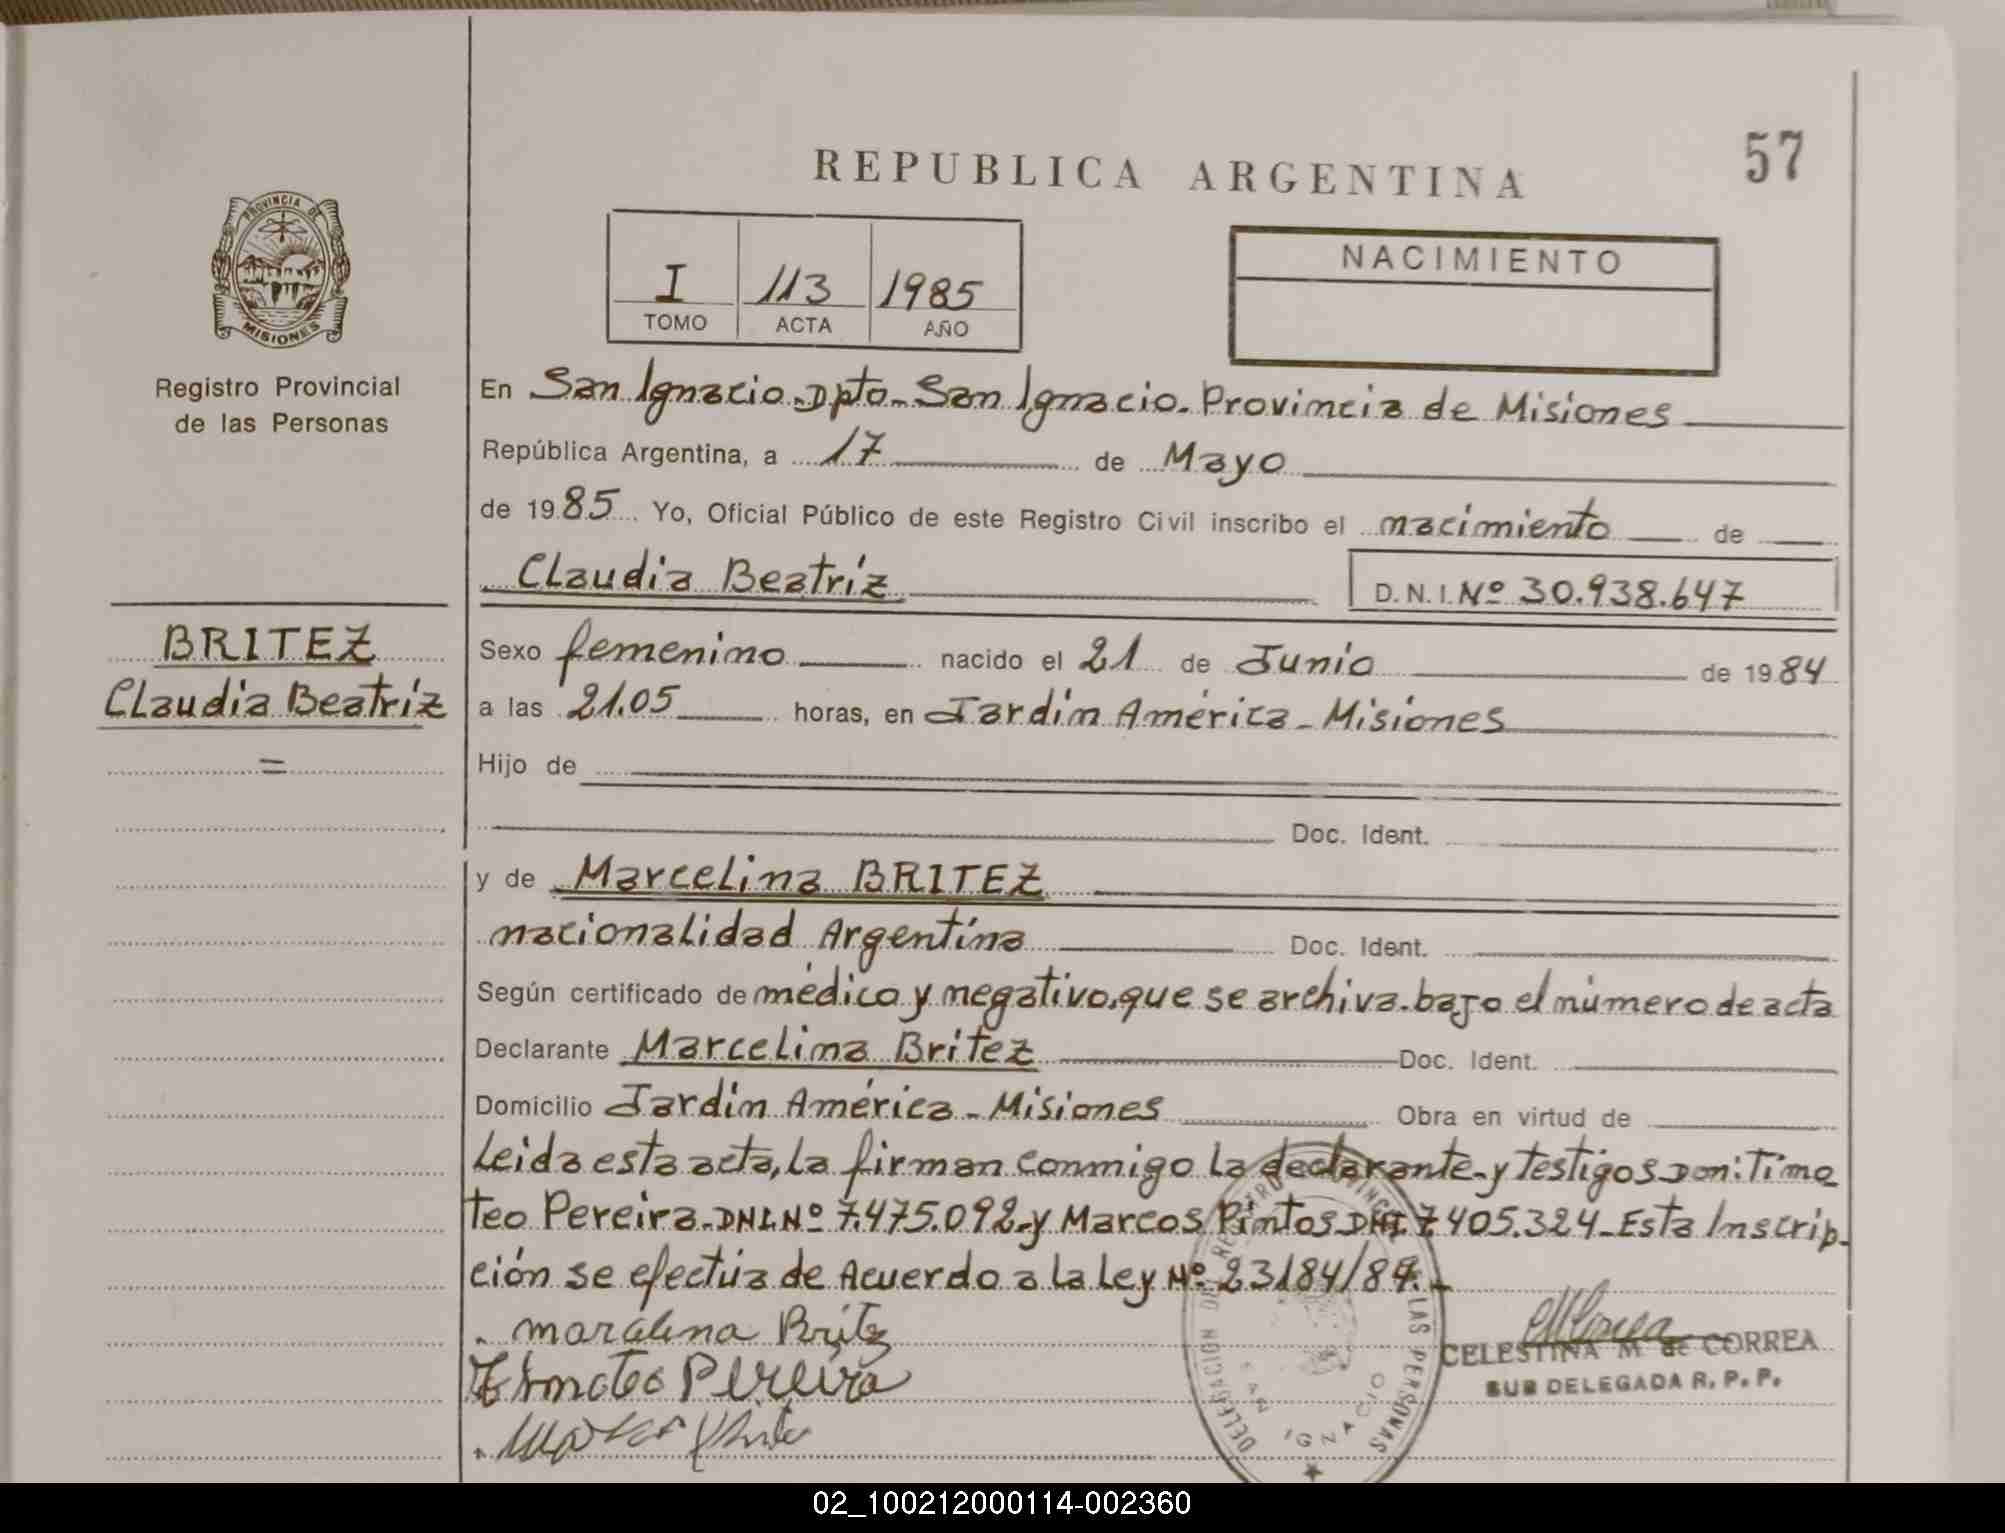 57
REPUBLICA ARGENTINA
PROVINCIA DE
MISIONES
Registro Provincial
de las Personas
I 113 1985
TOMO ACTA AÑO
NACIMIENTO
En San Ignacio. Dpto. San Ignacio. Provincia de Misiones
República Argentina, a 17 de Mayo
de 1985 Yo, Oficial Público de este Registro Civil inscribo el nacimiento de
Claudia Beatríz D.N.I. Nº 30.938.647
BRITEZ
Claudia Beatríz
=
Sexo femenino nacido el 21 de Junio de 1984
a las 21.05 horas, en Jardín América - Misiones
Hijo de
Doc. Ident.
y de Marcelina BRITEZ
nacionalidad Argentina Doc. Ident.
Según certificado de médico y negativo, que se archiva bajo el número de acta
Declarante Marcelina Britez Doc. Ident.
Domicilio Jardín América - Misiones Obra en virtud de
Leida esta acta, la firman conmigo la declarante y testigos Don: Timo
teo Pereira. DNI. Nº 7.475.092 y Marcos Pintos DNI 7.405.324 - Esta Inscrip-
ción se efectúa de Acuerdo a la Ley Nº 23184/84. -
Marcelina Britez
Timoteo Pereira
CELESTINA M. de CORREA
SUB DELEGADA R. P. P.
DELEGACION DEL REGISTRO PROVINCIAL DE LAS PERSONAS
SAN IGNACIO
02_100212000114-002360